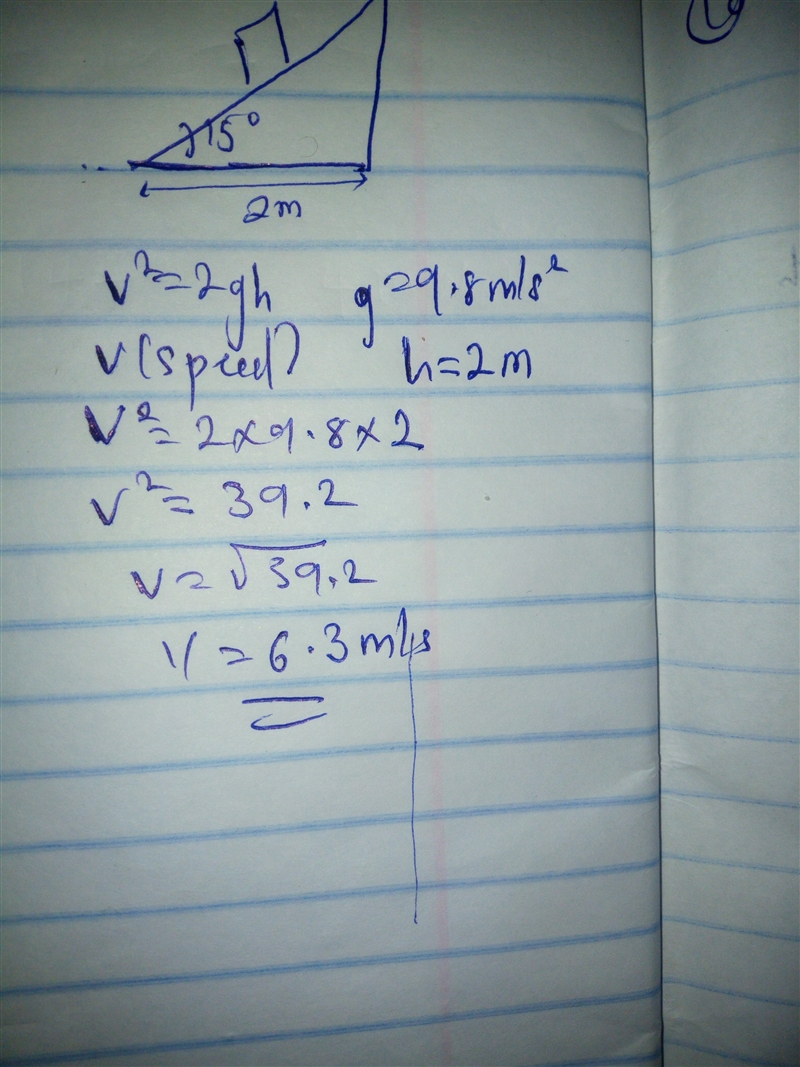 15°
2m
v²=2gh g=9.8m/s²
v(speed) h=2m
v²=2×9.8×2
v²=39.2
v=√39.2
v=6.3m/s